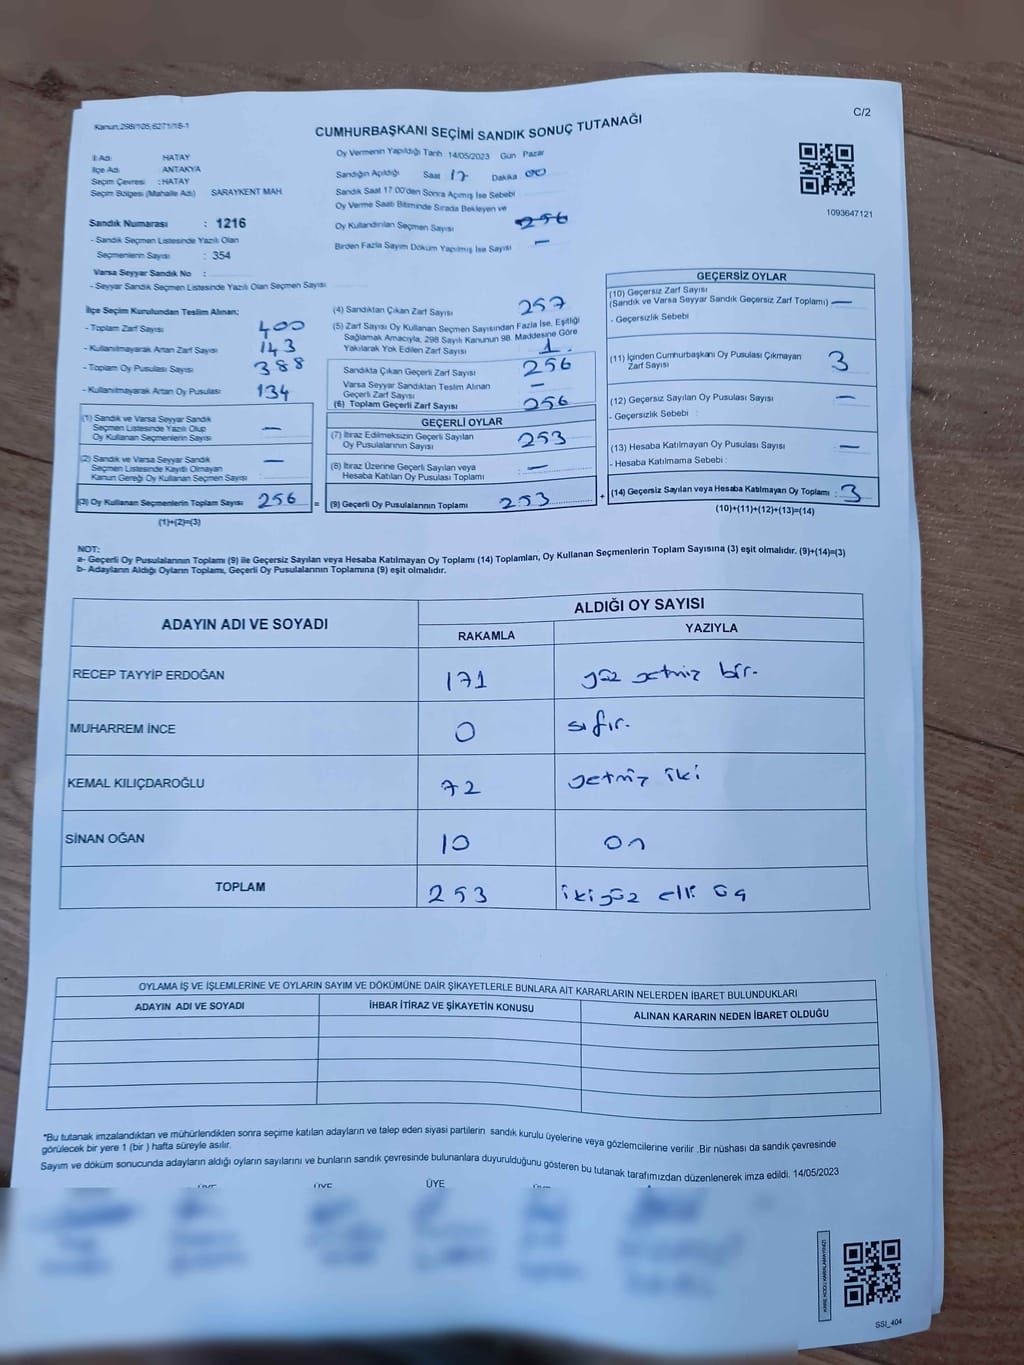 Kanun.298/105,6271/18-1
C/2
CUMHURBAŞKANI SEÇİMİ SANDIK SONUÇ TUTANAĞI
İl Adı : HATAY
İlçe Adı : ANTAKYA
Seçim Çevresi : HATAY
Seçim Bölgesi (Mahalle Adı) SARAYKENT MAH
Sandık Numarası : 1216
- Sandık Seçmen Listesinde Yazılı Olan
Seçmenlerin Sayısı : 354
Varsa Seyyar Sandık No :
- Seyyar Sandık Seçmen Listesinde Yazılı Olan Seçmen Sayısı
Oy Vermenin Yapıldığı Tarih 14/05/2023 Gün Pazar
Sandığın Açıldığı Saat 17 Dakika 00
Sandık Saat 17:00'den Sonra Açımış İse Sebebi
Oy Verme Saati Bitiminde Sırada Bekleyen ve
Oy Kullandırılan Seçmen Sayısı 256
Birden Fazla Sayım Döküm Yapılmış İse Sayısı —
1093647121
İlçe Seçim Kurulundan Teslim Alınan;
- Toplam Zarf Sayısı 400
- Kullanılmayarak Artan Zarf Sayısı 143
- Toplam Oy Pusulası Sayısı 388
- Kullanılmayarak Artan Oy Pusulası 134
(1) Sandık ve Varsa Seyyar Sandık
Seçmen Listesinde Yazılı Olup
Oy Kullanan Seçmenlerin Sayısı —
(2) Sandık ve Varsa Seyyar Sandık
Seçmen Listesinde Kayıtlı Olmayan
Kanun Gereği Oy Kullanan Seçmen Sayısı —
(3) Oy Kullanan Seçmenlerin Toplam Sayısı 256
(1)+(2)=(3)
(4) Sandıktan Çıkan Zarf Sayısı 257
(5) Zarf Sayısı Oy Kullanan Seçmen Sayısından Fazla İse, Eşitliği
Sağlamak Amacıyla, 298 Sayılı Kanunun 98. Maddesine Göre
Yakılarak Yok Edilen Zarf Sayısı 1.
Sandıkta Çıkan Geçerli Zarf Sayısı 256
Varsa Seyyar Sandıktan Teslim Alınan
Geçerli Zarf Sayısı —
(6) Toplam Geçerli Zarf Sayısı 256
GEÇERLİ OYLAR
(7) İtiraz Edilmeksizin Geçerli Sayılan
Oy Pusulalarının Sayısı 253
(8) İtiraz Üzerine Geçerli Sayılan veya
Hesaba Katılan Oy Pusulası Toplamı : —
= (9) Geçerli Oy Pusulalarının Toplamı 253
GEÇERSİZ OYLAR
(10) Geçersiz Zarf Sayısı
(Sandık ve Varsa Seyyar Sandık Geçersiz Zarf Toplamı) —
- Geçersizlik Sebebi
(11) İçinden Cumhurbaşkanı Oy Pusulası Çıkmayan
Zarf Sayısı 3
(12) Geçersiz Sayılan Oy Pusulası Sayısı —
- Geçersizlik Sebebi :
(13) Hesaba Katılmayan Oy Pusulası Sayısı —
- Hesaba Katılmama Sebebi :
+ (14) Geçersiz Sayılan veya Hesaba Katılmayan Oy Toplamı : 3
(10)+(11)+(12)+(13)=(14)
NOT:
a- Geçerli Oy Pusulalarının Toplamı (9) ile Geçersiz Sayılan veya Hesaba Katılmayan Oy Toplamı (14) Toplamları, Oy Kullanan Seçmenlerin Toplam Sayısına (3) eşit olmalıdır. (9)+(14)=(3)
b- Adayların Aldığı Oyların Toplamı, Geçerli Oy Pusulalarının Toplamına (9) eşit olmalıdır.
ADAYIN ADI VE SOYADI
ALDIĞI OY SAYISI
RAKAMLA YAZIYLA
RECEP TAYYİP ERDOĞAN 171 yüz yetmiz bir.
MUHARREM İNCE 0 sıfır.
KEMAL KILIÇDAROĞLU 72 yetmiz iki
SİNAN OĞAN 10 on
TOPLAM 253 iki yüz elli üç
OYLAMA İŞ VE İŞLEMLERİNE VE OYLARIN SAYIM VE DÖKÜMÜNE DAİR ŞİKAYETLERLE BUNLARA AİT KARARLARIN NELERDEN İBARET BULUNDUKLARI
ADAYIN ADI VE SOYADI İHBAR İTİRAZ VE ŞİKAYETİN KONUSU ALINAN KARARIN NEDEN İBARET OLDUĞU
*Bu tutanak imzalandıktan ve mühürlendikten sonra seçime katılan adayların ve talep eden siyasi partilerin sandık kurulu üyelerine veya gözlemcilerine verilir .Bir nüshası da sandık çevresinde
görülecek bir yere 1 (bir ) hafta süreyle asılır.
Sayım ve döküm sonucunda adayların aldığı oyların sayılarını ve bunların sandık çevresinde bulunanlara duyurulduğunu gösteren bu tutanak tarafımızdan düzenlenerek imza edildi. 14/05/2023
ÜYE ÜYE ÜYE
SSI_404